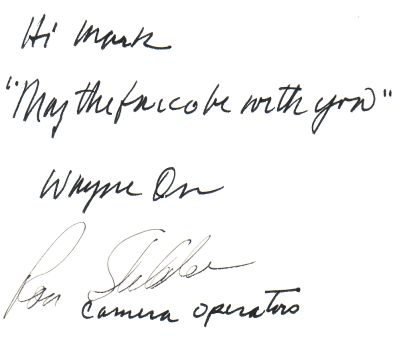 Hi Mark
"May the force be with you"
Wayne Orr
Ron
Camera operators